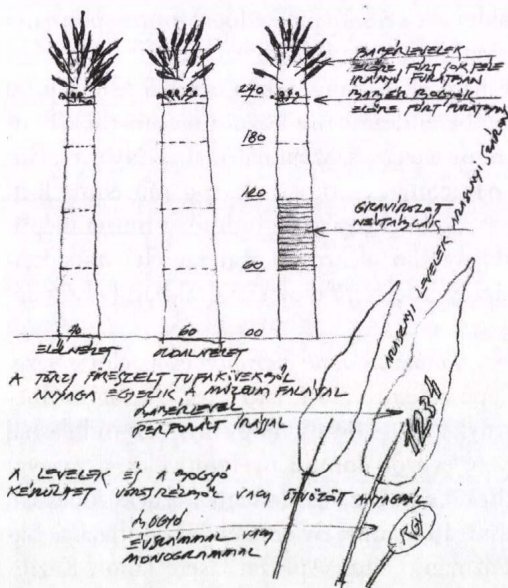 BABÉRLEVELEK
ELŐRE FÚRT SOKFÉLE
IRÁNYÚ FURATBAN
BABÉR BOGYÓK
ELŐRE FÚRT FURATBAN
240
180
120
GRAVÍROZOTT
NÉVTÁBLÁK
60
00
40
60
ELÖLNÉZET
OLDALNÉZET
A TÖRZS FŰRÉSZELT TUFAKŐVEKBŐL
ANYAGA EGYEZIK MÚZEUM FALÁVAL
BABÉRLEVÉL
PERFORÁLT ÍRÁSSAL
A LEVELEK ÉS A BOGYÓ
KÉSZÜLHET VÖRÖSRÉZBŐL VAGY ÖTVÖZÖTT ANYAGBÓL
BOGYÓ
ÉVSZÁMMAL VAGY
MONOGRAMMAL
LEVELEK
1234
RGY